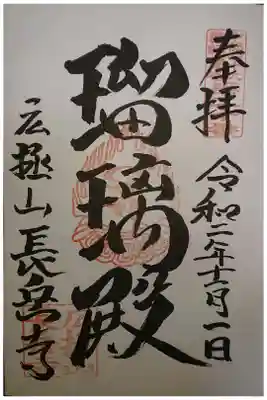 奉拝
令和二年十一月一日
瑠璃殿
広拯山長岳寺